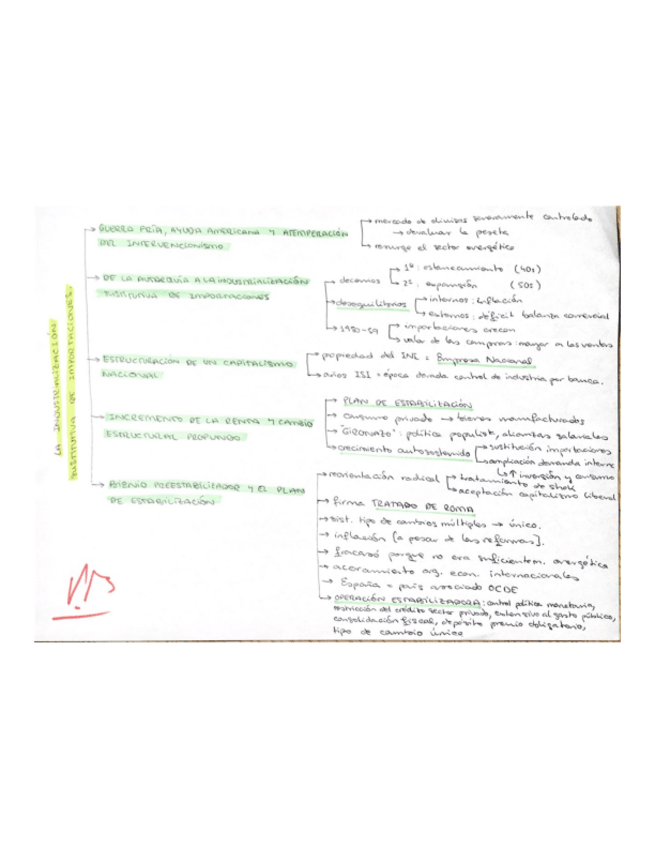 LA INDUSTRIALIZACIÓN
SUSTITUTIVA DE IMPORTACIONES.
→ GUERRA FRÍA, AYUDA AMERICANA Y ATEMPERACIÓN
DEL INTERVENCIONISMO
→ mercado de divisas severamente controlado
→ devaluar la peseta
→ resurge el sector energético
→ DE LA AUTARQUÍA A LA INDUSTRIALIZACIÓN
SUSTITUTIVA DE IMPORTACIONES
→ decenios
→ 1º: estancamiento (40s)
→ 2º: expansión (50s)
→ desequilibrios
→ internos: inflación
→ externos: déficit balanza comercial
→ 1950-59
→ importaciones crecen
→ valor de las compras: mayor a las ventas
→ ESTRUCTURACIÓN DE UN CAPITALISMO
NACIONAL
→ propiedad del INI = Empresa Nacional
→ años ISI = época dorada control de industria por banca.
→ INCREMENTO DE LA RENTA Y CAMBIO
ESTRUCTURAL PROFUNDO
→ PLAN DE ESTABILITACIÓN
→ consumo privado → bienes manufacturados
→ "GIRONAZO": política populista, alianzas salariales
→ crecimiento autosostenido
→ sustitución importaciones
→ ampliación demanda interna
↳ ↑ inversión y consumo
→ BIENIO PREESTABILIZADOR Y EL PLAN
DE ESTABILIZACIÓN
→ reorientación radical
→ tratamiento de shok
→ aceptación capitalismo liberal
→ firma TRATADO DE ROMA
→ sist. tipo de cambios múltiples → único.
→ inflación [a pesar de las reformas].
→ fracasó porque no era suficientem. energético
→ acercamiento org. econ. internacionales
→ España = país asociado OCDE
→ OPERACIÓN ESTABILIZADORA: control política monetaria,
restricción del crédito sector privado, extensivo al gasto público,
consolidación fiscal, depósito previo obligatorio,
tipo de cambio único